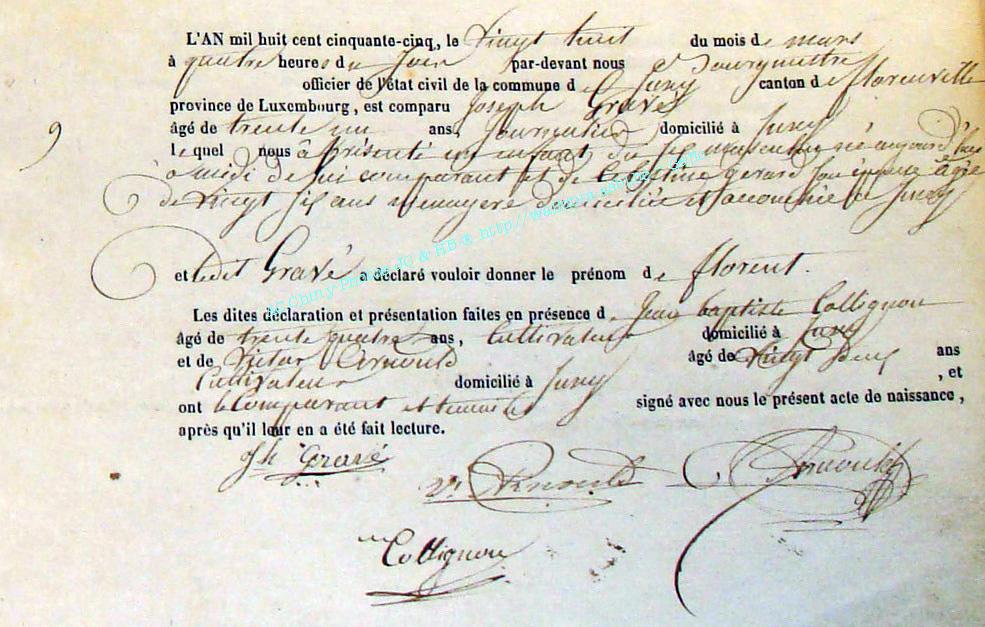 L'AN mil huit cent cinquante-cinq, le Vingt huit du mois de mars
à quatre heures du Soir par-devant nous Bourgmestre
officier de l'état civil de la commune de Suny canton de florenville
province de Luxembourg, est comparu Joseph Gravé
9 âgé de trente un ans, Journalier domicilié à Suny
lequel nous à présenté un enfant du masculin né aujourd'hui
à midi de lui comparant et de Celestine gerard Son épouse âgée
de Vingt ans menagère domiciliée et accouchée à Suny
et ledit Gravé a déclaré vouloir donner le prénom de florent.
Les dites déclaration et présentation faites en présence de Jean baptiste Collignon
âgé de trente quatre ans, Cultivateur domicilié à Suny
et de Victor Arnould âgé de Vingt deux ans
Cultivateur domicilié à Suny , et
ont le Comparant et temoins signé avec nous le présent acte de naissance,
après qu'il leur en a été fait lecture.
Jh Gravé
Vr Arnould
Arnould
Collignon